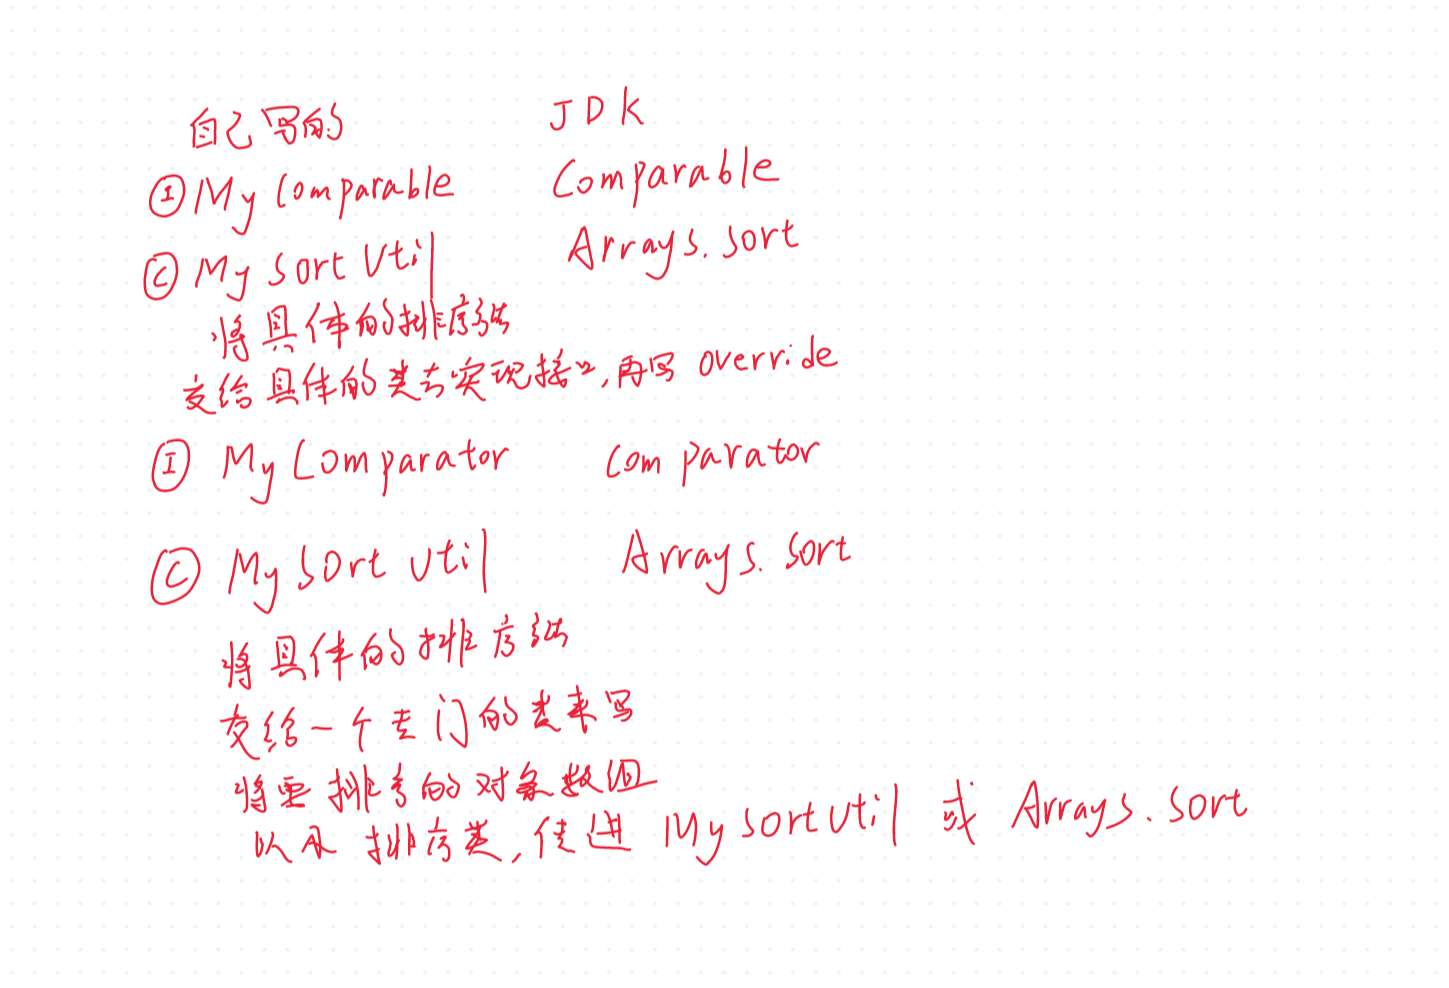 自己写的 JDK
Ⓘ My Comparable Comparable
Ⓒ My Sort Util Arrays.sort
将具体的排序方法
交给具体的类去实现接口,再写 override
Ⓘ My Comparator Comparator
Ⓒ My Sort Util Arrays.sort
将具体的排序方法
交给一个专门的类来写
将要排序的对象数组
以及排序类,传进 My sort Util 或 Arrays.sort